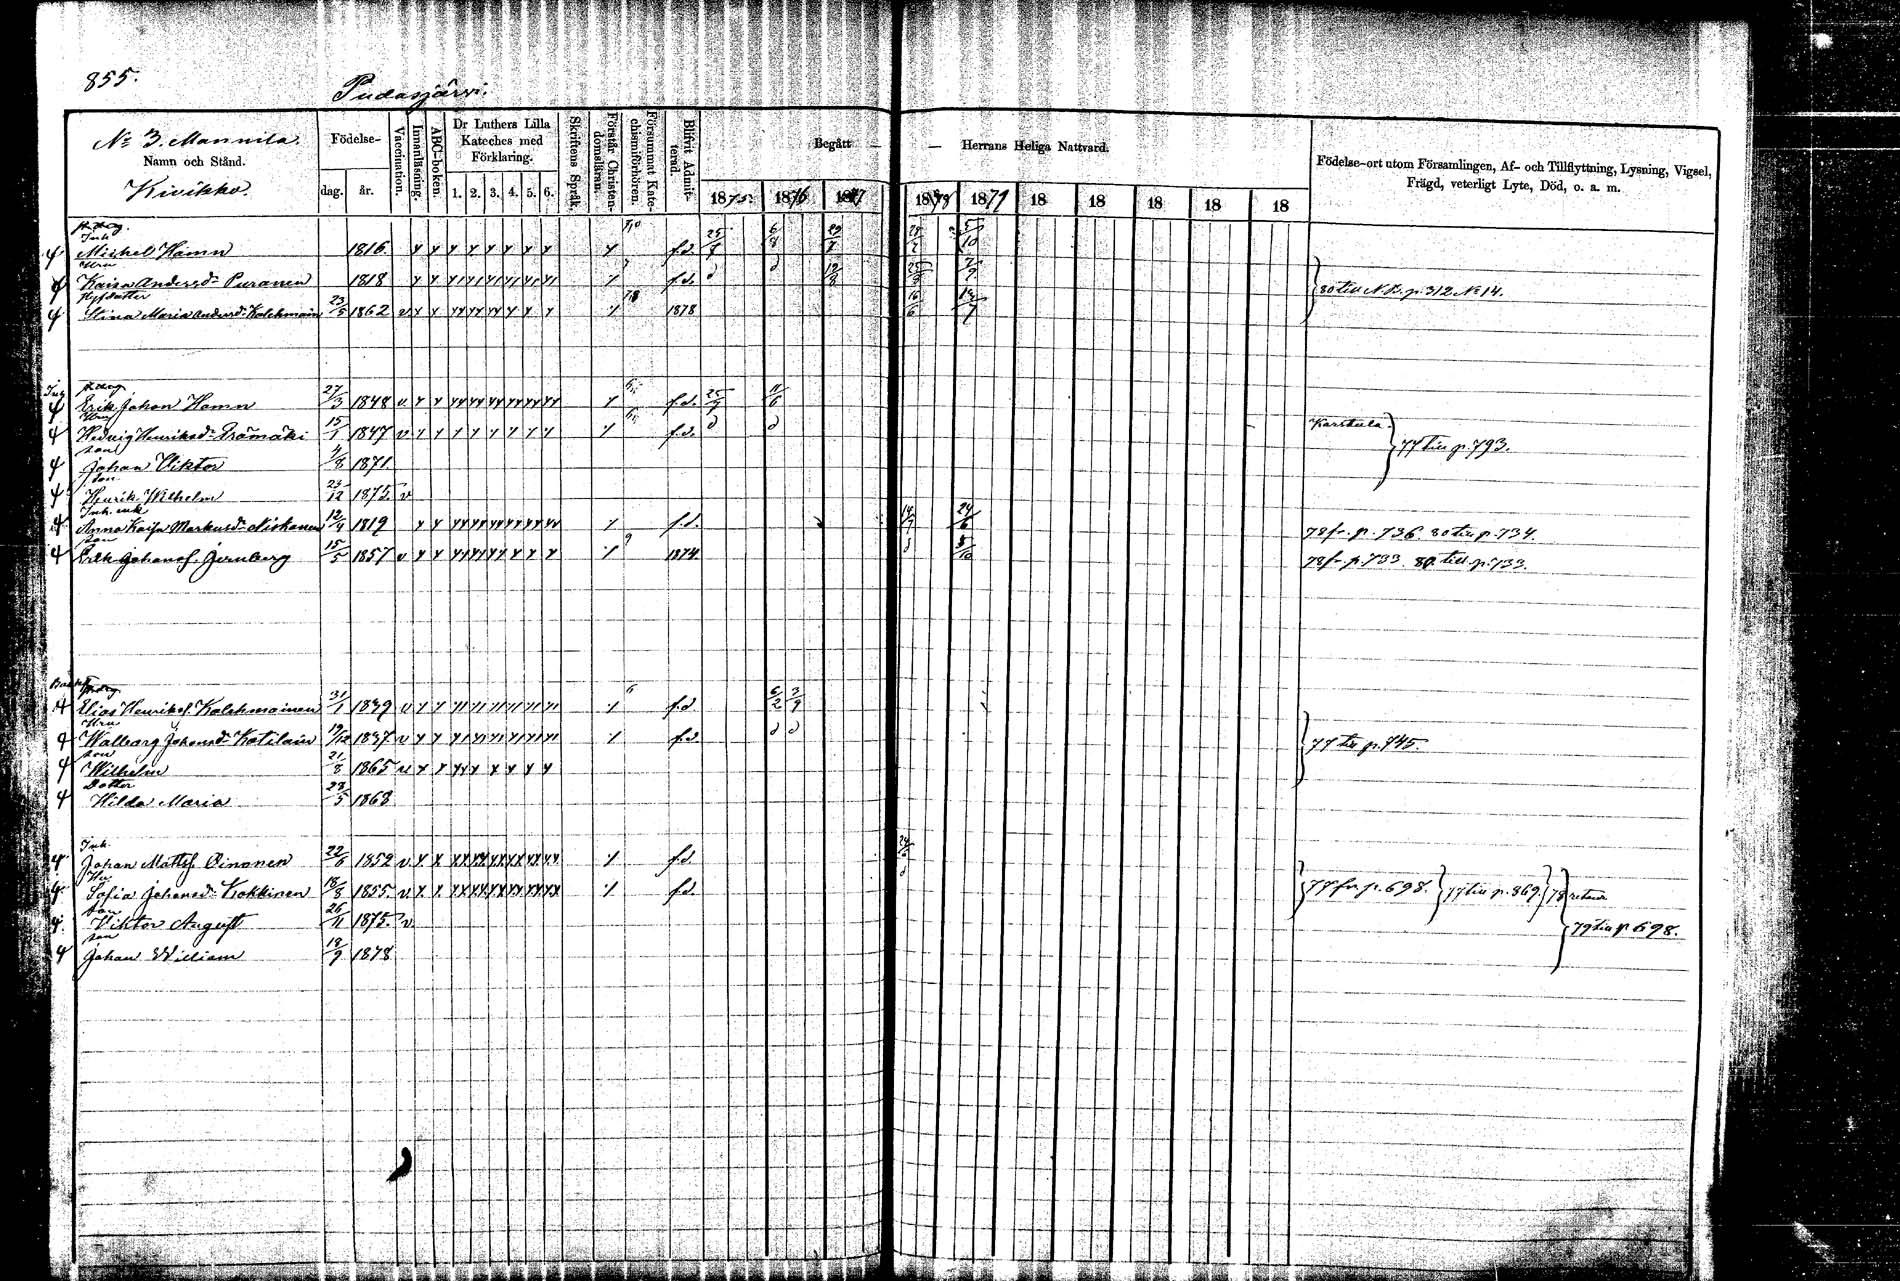 855.
Pudasjärvi.
No 3. Mannila.
Namn och Stånd.
Kivikko.
Födelse-
dag. år.
Vaccination.
Innanläsning.
ABC-boken.
Dr Luthers Lilla Kateches med Förklaring.
1. 2. 3. 4. 5. 6.
Skriftens Språk.
Förstår Christendomsläran.
Försummat Katechismiförhören.
Blifvit Admitterad.
Begått — — Herrans Heliga Nattvard.
1875. 1876 1877 1878 1879 18 18 18 18 18
Födelse-ort utom Församlingen, Af- och Tillflyttning, Lysning, Vigsel, Frägd, veterligt Lyte, Död, o. a. m.
Inh
Mickel Hamn 1816. f.d. 25/7 6/8
Hru
Kaisa Andersd. Puranen 1818 f.d. 12/8 7/9
80 till N.B. p. 312 No 14.
Stina Maria Andersd. Kolehmain 23/5 1862 v 1878 16/6
Erik Johan Hamn 27/3 1848 v f.d. 25/7 11/6
Hru
Hedvig Henriksd. 15/1 1847 v f.d.
Karstula
77 till p. 793.
son
Johan Viktor 1871
son
Henrik Wilhelm 23/12 1875. v
Inh. enk
Anna Kaisa Markusd. Niskanen 12/9 1819 f.d. 14/7 24/6
78 fr. p. 736. 80 till p. 734.
son
Erik Johans. Jernberg 15/5 1857 v 1874 5/10
78 fr. p. 733. 80 till p. 733.
Elias Henriks. Kolehmainen 31/1 1839 v f.d 6/2 3/9
Hru
Walborg Johansd. Katilain 19/12 1837 v f.d.
77 till p. 745.
son
Wilhelm 21/8 1865 v
Dotter
Hilda Maria 23/5 1868
Inh.
Johan Matts. Oinonen 22/6 1852 v f.d. 24/6
Hu
Sofia Johansd. Kokkinen 18/8 1855. v f.d.
77 fr. p. 698. 77 till p. 869. 78
son
Viktor August 26/11 1875. v
79 till p. 698.
son
Johan William 18/9 1878